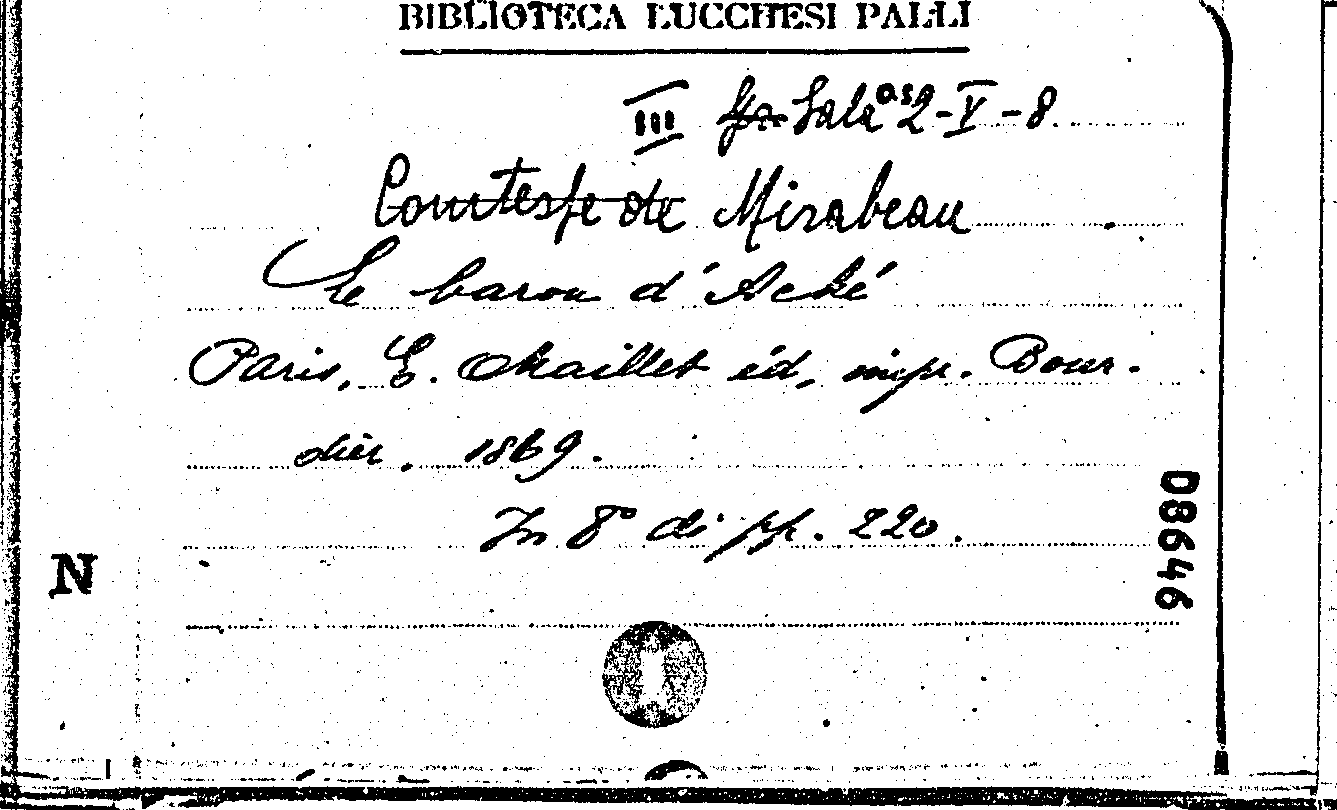 BIBLIOTECA LUCCHESI PALLI
III Sala 2-V-8
Comtesse de Mirabeau
Le baron d'Aché
Paris, E. Maillet éd, impr. Bour-
dier. 1869.
In 8° di pp. 220.
08646
N